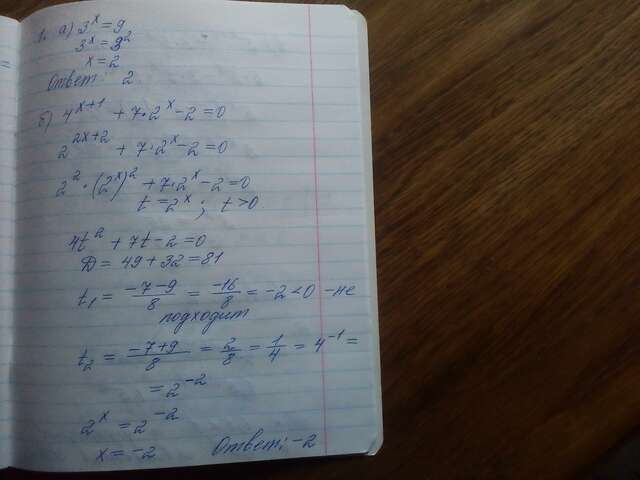 1. а) 3^x = 9
3^x = 3^2
x = 2
Ответ: 2
б) 4^(x+1) + 7·2^x - 2 = 0
2^(2x+2) + 7·2^x - 2 = 0
2^2 · (2^x)^2 + 7·2^x - 2 = 0
t = 2^x ; t > 0
4t^2 + 7t - 2 = 0
D = 49 + 32 = 81
t₁ = (-7-9)/8 = -16/8 = -2 < 0 - не
подходит
t₂ = (-7+9)/8 = 2/8 = 1/4 = 4^(-1) =
= 2^(-2)
2^x = 2^(-2)
x = -2 Ответ: -2